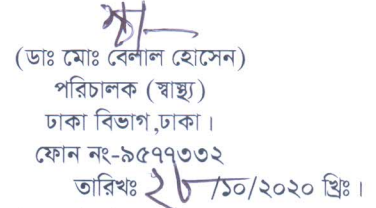 (ডাঃ মোঃ বেলাল হোসেন)
পরিচালক (স্বাস্থ্য)
ঢাকা বিভাগ,ঢাকা।
ফোন নং-৯৫৭৭৩৩২
তারিখঃ ২৮/১০/২০২০ খ্রিঃ।